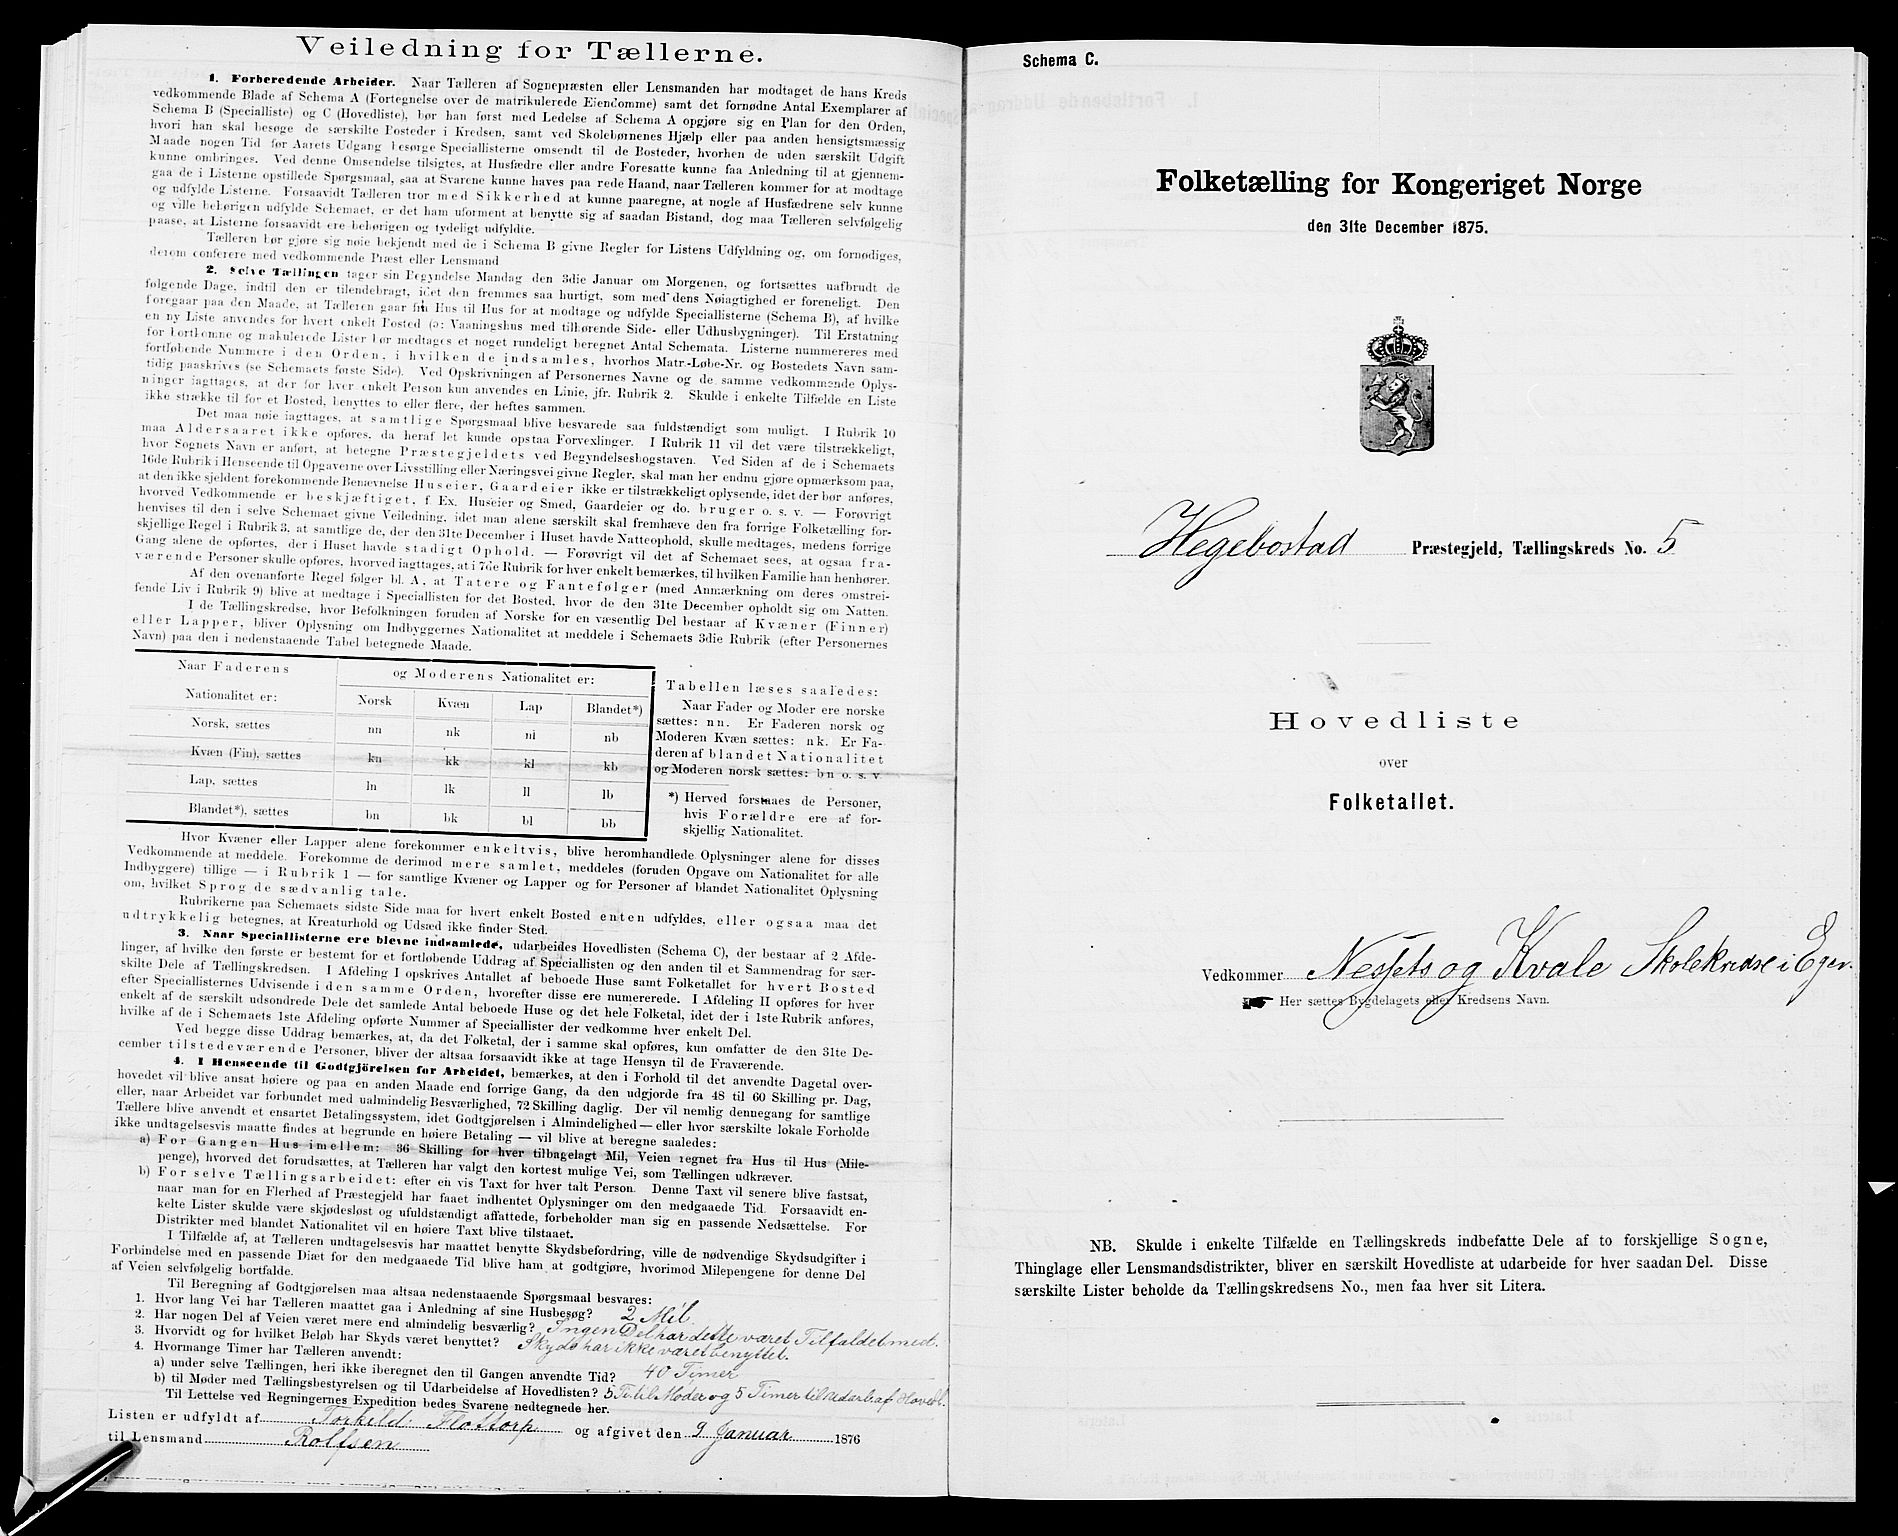 Veiledning for Tællerne.
1. Forberedende Arbeider. Naar Tælleren af Sognepræsten eller Lensmanden har modtaget de hans Kreds
vedkommende Blade af Schema A (Fortegnelse over de matrikulerede Eiendomme) samt det fornødne Antal Exemplarer af
Schema B (Specialliste) og C (Hovedliste), bør han først med Ledelse af Schema A opgjøre sig en Plan for den Orden,
hvori han skal besøge de særskilte Posteder i Kredsen, samt ved Skolebørnenes Hjælp eller paa anden hensigtsmæssig
Maade nogen Tid før Aarets Udgang besørge Speciallisterne omsendt til de Bosteder, hvorhen de uden særskilt Udgift
kunne ombringes. Ved denne Omsendelse tilsigtes, at Husfædre eller andre Foresatte kunne faa Anledning til at gjennem-
gaa de i Listerne opstillede Spørgsmaal, saa at Svarene kunne haves paa rede Haand, naar Tælleren kommer for at modtage
og udfylde Listerne. Forsaavidt Tælleren tror med Sikkerhed at kunne paaregne, at nogle af Husfædrene selv kunne
og ville behørigen udfylde Schemaet, er det ham uforment at benytte sig af saadan Bistand, dog maa Tælleren selvfølgelig
paase, at Listerne forsaavidt ere behørigen og tydeligt udfyldte.
Tælleren bør gjøre sig nøie bekjendt med de i Schema B givne Regler for Listens Udfyldning og, om fornødiges,
derom conferere med vedkommende Præst eller Lensmand
2. Selve Tællingen tager sin Begyndelse Mandag den 3die Januar om Morgenen, og fortsættes uafbrudt de
følgende Dage, indtil den er tilendebragt, idet den fremmes saa hurtigt, som med dens Nøiagtighed er foreneligt. Den
foregaar paa den Maade, at Tælleren gaar fra Hus til Hus for at modtage og udfylde Speciallisterne (Schema B), af hvilke
en ny Liste anvendes for hvert enkelt Posted (ɔ: Vaaningshus med tilhørende Side- eller Udhusbygninger). Til Erstatning
for bortkomne og makulerede Lister bør medtages et noget rundeligt beregnet Antal Schemata. Listerne nummereres med
fortløbende Nummere i den Orden, i hvilken de indsamles, hvorhos Matr-Løbe-Nr. og Bostedets Navn sam-
tidig paaskrives (se Schemaets første Side). Ved Opskrivningen af Personernes Navne og de samme vedkommende Oplys-
ninger iagttages, at der for hver enkelt Person kun anvendes en Linie, jfr. Rubrik 2. Skulde i enkelte Tilfælde en Liste
ikke strække til for et Bosted, benyttes to eller flere, der heftes sammen.
Det maa nøie iagttages, at samtlige Spørgsmaal blive besvarede saa fuldstændigt som muligt. I Rubrik 10
maa Aldersaaret ikke opføres, da heraf let kunde opstaa Forvexlinger. I Rubrik 11 vil det være tilstrækkeligt,
hvor Sognets Navn er anført, at betegne Præstegjeldets ved Begyndelsesbogstaven. Ved Siden af de i Schemaets
16de Rubrik i Henseende til Opgaverne over Livsstilling eller Næringsvei givne Regler, skal man her endnu gjøre opmærksom paa,
at den ikke sjeldent forekommende Benævnelse Huseier, Gaardeier ikke er tilstrækkeligt oplysende, idet der bør anføres,
hvorved Vedkommende er beskjæftiget, f. Ex. Huseier og Smed, Gaardeier og do. bruger o. s. v. — Forøvrigt
henvises til den i selve Schemaet givne Veiledning, idet man alene særskilt skal fremhæve den fra forrige Folketælling for-
skjellige Regel i Rubrik 3, at samtlige de, der den 31te December i Huset havde Natteophold, skulle medtages, medens forrige
Gang alene de opførtes, der i Huset havde stadigt Ophold. — Forøvrigt vil det af Schemaet sees, at ogsaa fra-
værende Personer skulle opføres, hvorved iagttages, at i 7de Rubrik for hver enkelt bemærkes, til hvilken Familie han henhører.
Af den ovenanførte Regel følger bl. A, at Tatere og Fantefølger (med Anmærkning om deres omstrei-
fende Liv i Rubrik 9) blive at medtage i Speciallisten for det Bosted, hvor de den 31te December opholdt sig om Natten.
I de Tællingskredse, hvor Befolkningen foruden af Norske for en væsentlig Del bestaar af Kvæner (Finner)
eller Lapper, bliver Oplysning om Indbyggernes Nationalitet at meddele i Schemaets 3die Rubrik (efter Personernes
Navn) paa den i nedenstaaende Tabel betegnede Maade.
Naar Faderens Nationalitet er: og Moderens Nationalitet er:
Norsk Kvæn Lap Blandet*)
Norsk, sættes nn nk nl nb
Kvæn (Fin), sættes kn kk kl kb
Lap, sættes ln lk ll lb
Blandet*), sættes bn bk bl bb
Tabellen læses saaledes:
Naar Fader og Moder ere norske
sættes: nn. Er Faderen norsk og
Moderen Kvæn sættes: nk. Er Fa-
deren af blandet Nationalitet
og Moderen norsk sættes: bn o. s. v
*) Herved forstaaes de Personer,
hvis Forældre ere af for-
skjellig Nationalitet.
Hvor Kvæner eller Lapper alene forekommer enkeltvis, blive heromhandlede Oplysninger alene for disses
Vedkommende at meddele. Forekomme de derimod mere samlet, meddeles (foruden Opgave om Nationalitet for alle
Indbyggere) tillige — i Rubrik 1 — for samtlige Kvæner og Lapper og for Personer af blandet Nationalitet Oplysning
om, hvilket Sprog de sædvanlig tale.
Rubrikerne paa Schemaets sidste Side maa for hvert enkelt Bosted enten udfyldes, eller ogsaa maa det
udtrykkelig betegnes, at Kreaturhold og Udsæd ikke finder Sted.
3. Naar Speciallisterne ere blevne indsamlede, udarbeides Hovedlisten (Schema C), der bestaar af 2 Afde-
linger, af hvilke den første er bestemt for et fortløbende Uddrag af Speciallisten og den anden til et Sammendrag for sær-
skilte Dele af Tællingskredsen. I Afdeling I opskrives Antallet af beboede Huse samt Folketallet for hvert Bosted
efter Speciallisternes Udvisende i den samme Orden, hvorefter disse ere numererede. I Afdeling II opføres for hver
enkelt af de særskilt udsondrede Dele det samlede Antal beboede Huse og det hele Folketal, idet der i 1ste Rubrik anføres,
hvilke af de i Schemaets 1ste Afdeling opførte Nummer af Speciallister der vedkomme hver enkelt Del.
Ved begge disse Uddrag bemærkes, at, da det Folketal, der i samme skal opføres, kun omfatter de den 31te De-
cember tilstedeværende Personer, bliver der altsaa forsaavidt ikke at tage Hensyn til de Fraværende.
4. I Henseende til Godtgjörelsen for Arbeidet, bemærkes, at den i Forhold til det anvendte Dagetal over-
hovedet vil blive ansat høiere og paa en anden Maade end forrige Gang, da den udgjorde fra 48 til 60 Skilling pr. Dag,
eller, naar Arbeidet var forbundet med ualmindelig Besværlighed, 72 Skilling daglig. Der vil nemlig dennegang for samtlige
Tællere blive anvendt et ensartet Betalingssystem, idet Godtgjørelsen i Almindelighed — eller hvor særskilte lokale Forholde
ikke undtagelsesvis maatte findes at begrunde en høiere Betaling — vil blive at beregne saaledes:
a) For Gangen Hus imellem: 36 Skilling for hver tilbagelagt Mil, Veien regnet fra Hus til Hus (Mile-
penge), hvorved det forudsættes, at Tælleren har valgt den kortest mulige Vei, som Tællingen udkræver.
b) For selve Tællingsarbeidet: efter en vis Taxt for hver talt Person. Denne Taxt vil senere blive fastsat,
naar man for en Flerhed af Præstegjeld har faaet indhentet Oplysninger om den medgaaede Tid. Forsaavidt en-
kelte Lister skulde være skjødesløst og ufuldstændigt affattede, forbeholder man sig en passende Nedsættelse. For
Distrikter med blandet Nationalitet vil en høiere Taxt blive tilstaaet.
I Tilfælde af, at Tælleren undtagelsesvis har maattet benytte Skydsbefordring, ville de nødvendige Skydsudgifter i
Forbindelse med en passende Diæt for den medgaaede Tid blive ham at godtgjøre, hvorimod Milepengene for denne Del
af Veien selvfølgelig bortfalde.
Til Beregning af Godtgjørelsen maa altsaa nedenstaaende Spørgsmaal besvares:
1. Hvor lang Vei har Tælleren maattet gaa i Anledning af sine Husbesøg? 2 Mil.
2. Har nogen Del af Veien været mere end almindelig besværlig? Ingen Del har dette været Tilfaldet med.
3. Hvorvidt og for hvilket Beløb har Skyds været benyttet? Skyds har ikke været benyttet.
4. Hvormange Timer har Tælleren anvendt:
a) under selve Tællingen, heri ikke iberegnet den til Gangen anvendte Tid? 40 Timer
b) til Møder med Tællingsbestyrelsen og til Udarbeidelse af Hovedlisten? 5 Ti. til Møder og 5 Timer til Udarb. af Hovedl.
Til Lettelse ved Regningernes Expedition bedes Svarene nedtegnede her.
Listen er udfyldt af Torkild Flottorp og afgivet den 9 Januar 1876
til Lensmand Rolfsen
Schema C.
Folketælling for Kongeriget Norge
den 31te December 1875.
Hegebostad Præstegjeld, Tællingskreds No. 5
Hovedliste
over
Folketallet.
Vedkommer Nessets og Kvale Skolekredse i Eger.
Her sættes Bygdelagets eller Kredsens Navn.
NB. Skulde i enkelte Tilfælde en Tællingskreds indbefatte Dele af to forskjellige Sogne,
Thinglage eller Lensmandsdistrikter, bliver en særskilt Hovedliste at udarbeide for hver saadan Del. Disse
særskilte Lister beholde da Tællingskredsens No., men faa hver sit Litera.